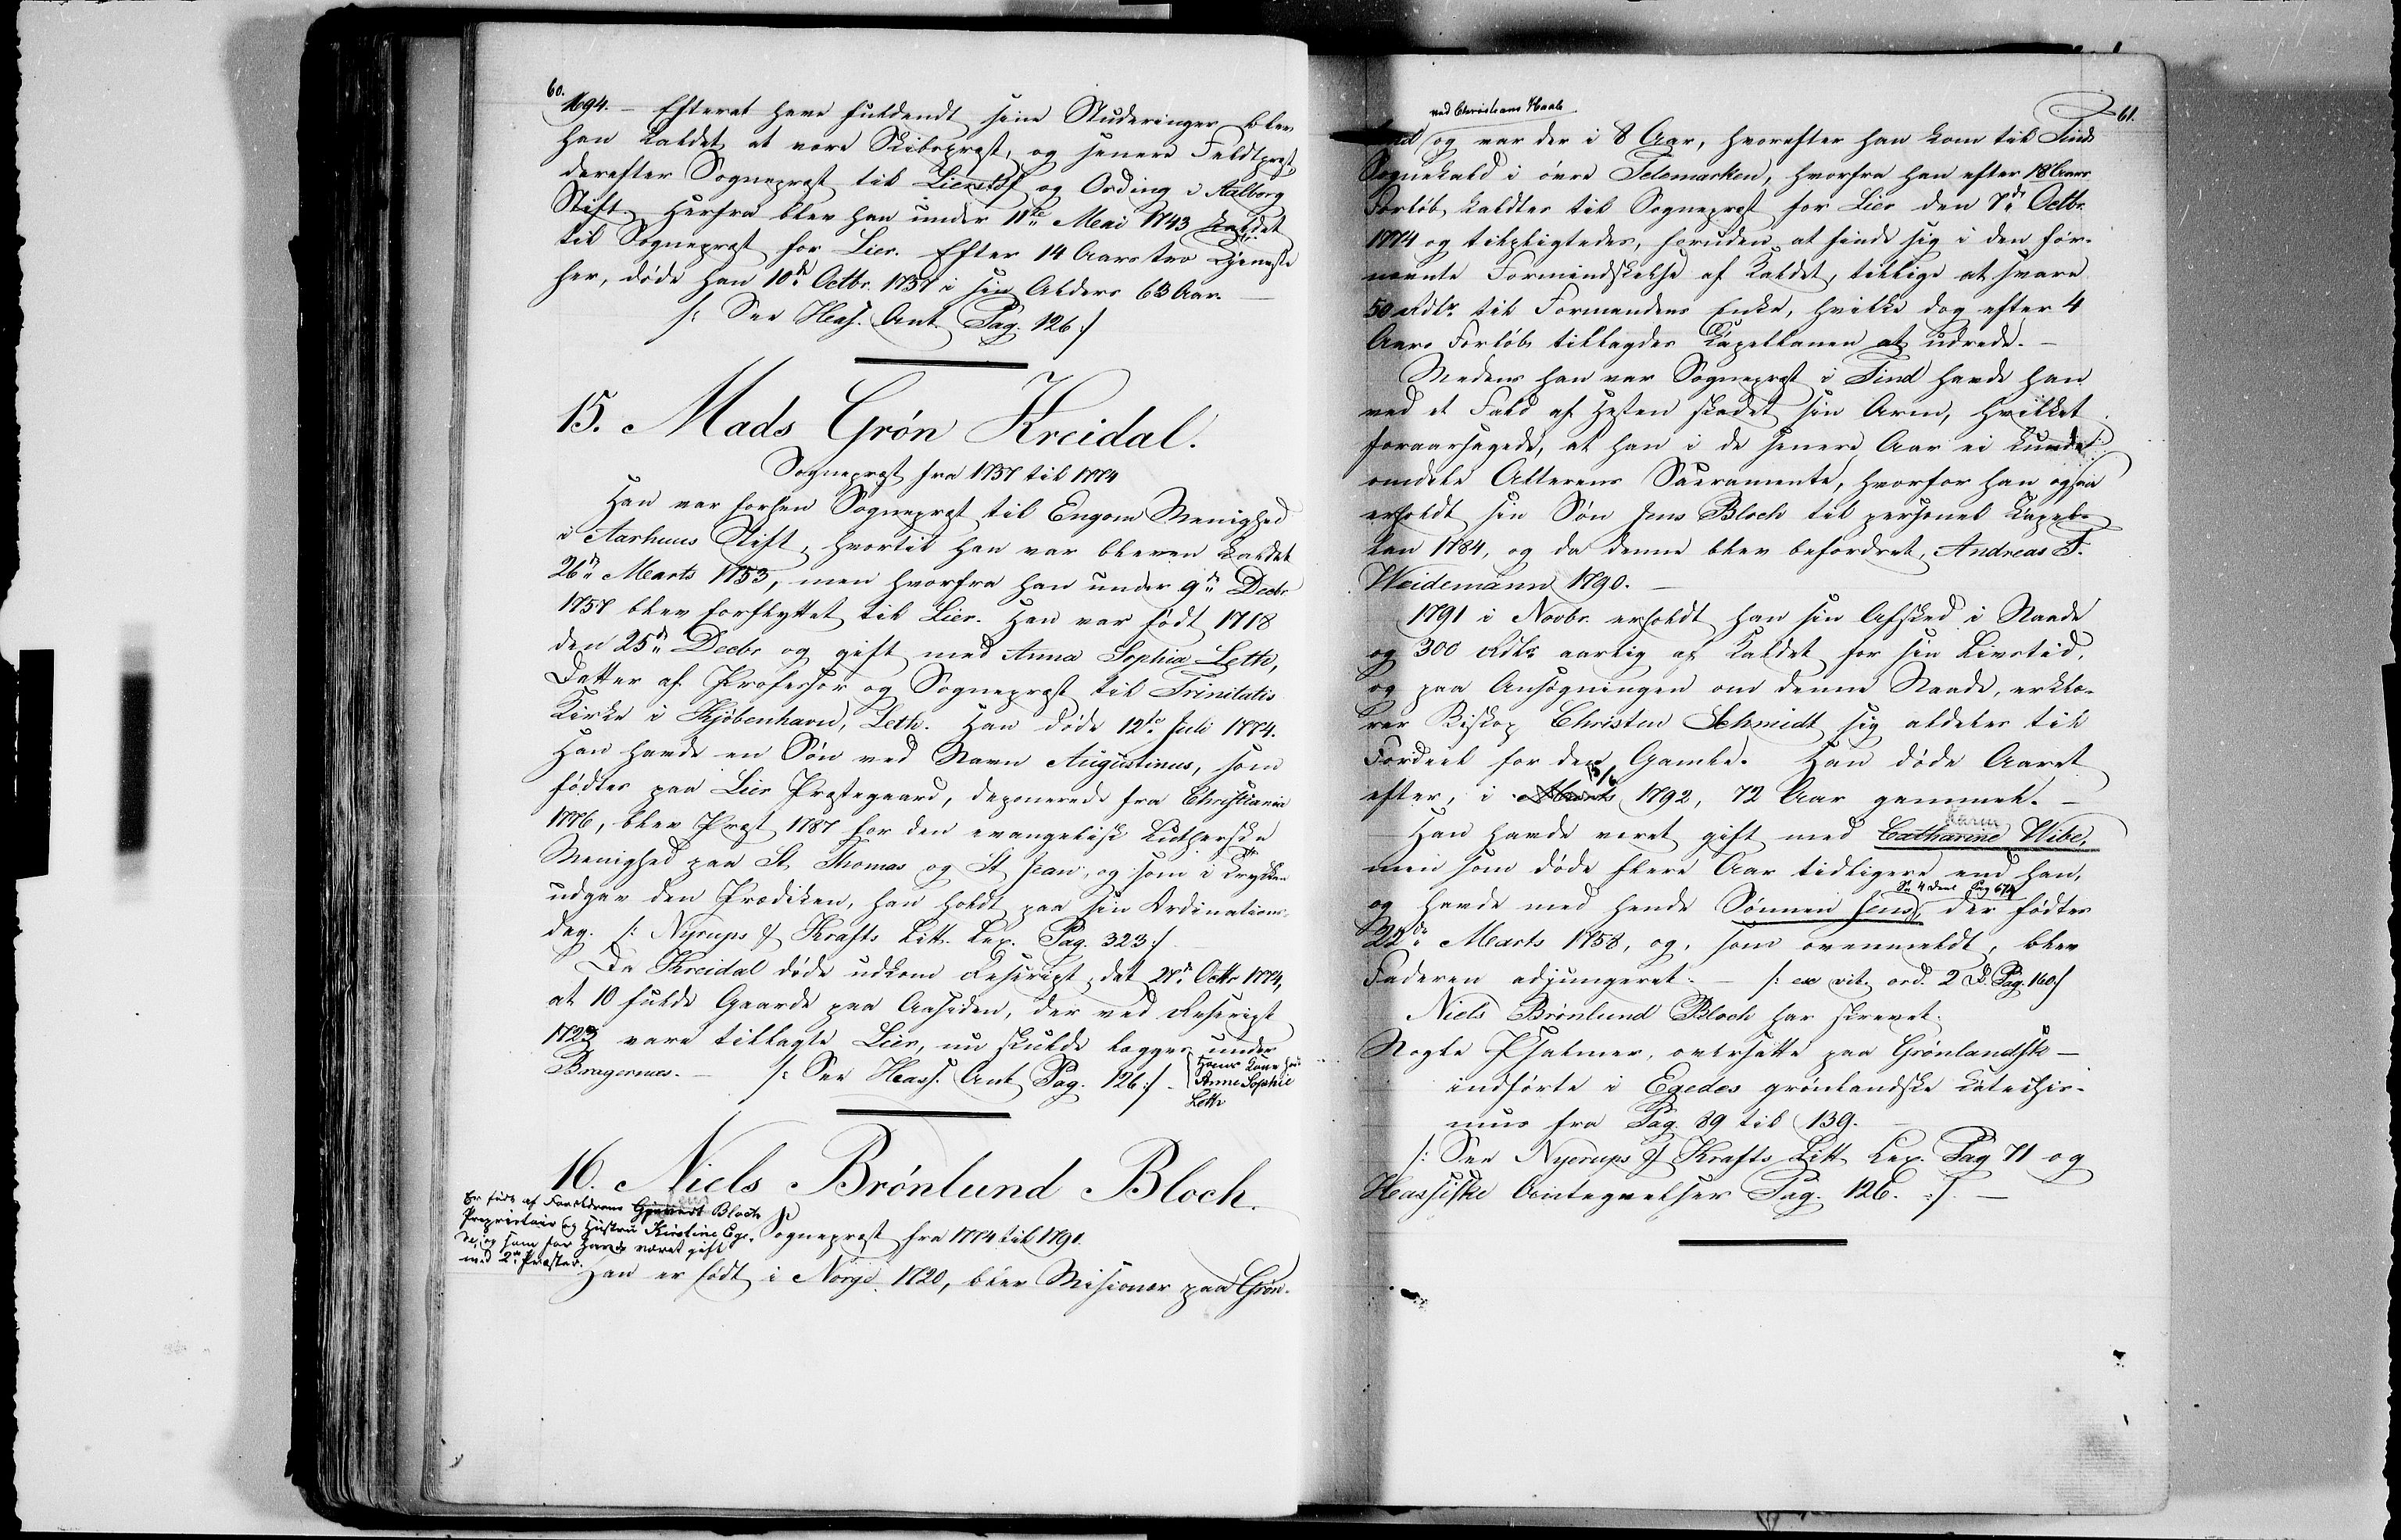 60.
1694. – Efterat have fuldendt sine Studeringer blev
han kaldet at være Skibspræst, og senere Feldtpræst,
derefter Sognepræst til Lierslef og Ording i Aalborg
Stift. Herfra blev han under 11te Mai 1743 kaldet
til Sognepræst for Lier. Efter 14 Aars tro Tjeneste
her, døde han 10de Octbr. 1757 i sin Alders 63 Aar. –
/: See Hass. Ant. Pag. 126 :/
15. Mads Grøn Kreidal.
Sognepræst fra 1757 til 1774
Han var forhen Sognepræst til Engom Menighed
i Aarhuus Stift, hvortil han var bleven kaldet
26de Marts 1753, men hvorfra han under 9de Decbr
1757 blev forflyttet til Lier. Han var født 1718
den 25de Decbr og gift med Anna Sophia Leth,
Datter af Professor og Sognepræst til Trinitatis
Kirke i Kjøbenhavn, Leth. Han døde 12te Juli 1774.
Han havde en Søn ved Navn Augustinus, som
fødtes paa Lier Præstegaard, deponerede fra Christiania
1776, blev Præst 1787 for den evangelisk Lutherske
Menighed paa St. Thomas og St Jean, og som i Trykken
udgav den Prædiken, han holdt paa sin Ordinations-
dag. /: Nyrups & Krafts Litt. Lex. Pag. 323 :/
Da Kreidal døde udkom Rescript, dat. 27de Octbr 1774,
at 10 fulde Gaarde paa Aassiden, der ved Rescript
1723 vare tillagte Lier, nu skulde lægges under
Bragernæs. – /: See Hass. Ant. Pag. 126 :/ –
Hans Kone hed
Anne Sophie
Leth
16. Niels Brønlund Bloch.
Er født af Forældrene Gjævert Bloch
Jens
Proprietair og Hustru Kirstine Ege-
de, og som før havde været gift
med 2de Præster.
Sognepræst fra 1774 til 1791.
Han er født i Norge 1720, blev Missionær paa Grøn-
61.
ved Christians Haab
land og var der i 8 Aar, hvorefter han kom til Tinds
Sognekald i øvre Telemarken, hvorfra han efter 18 Aars
Forløb kaldtes til Sognepræst for Lier den 7de Octbr.
1774 og tilpligtedes, foruden at finde sig i den før-
nævnte Formindskelse af Kaldet, tillige at svare
50 Rdlr. til Formandens Enke, hvilke dog efter 4
Aars Forløb tillagdes Kapellanen at udrede. –
Medens han var Sognepræst i Tind havde han
ved et Fald af Hesten skadet sin Arm, hvilket
foraarsagede, at han i de senere Aar ei kunde
omdele Alterens Sacramente, hvorfor han ogsaa
erholdt sin Søn Jens Bloch til personel Kapel-
lan 1784, og da denne blev befordret, Andreas F.
Weidemann 1790. –
1791 i Novbr. erholdt han sin Afsked i Naade
og 300 Rdlr aarlig af Kaldet for sin Livstid,
og paa Ansøgningen om denne Naade, erklæ-
rer Biskop Christen Schmidt sig aldeles til
Fordeel for den Gamle. Han døde Aaret
13/6
efter, i Marts 1792, 72 Aar gammel. –
Karen
Han havde været gift med Catharine Wibe,
men som døde flere Aar tidligere end han,
Se 4 Deel Pag 674
og havde med hende Sønnen Jens, der fødtes
22de Marts 1758, og, som ovenmeldt, blev
Faderen adjungeret. – /: ex vit. ord. 2 D. Pag. 160 :/
Niels Brønlund Bloch har skrevet:
Nogle Psalmer, oversatte paa Grønlandsk –
indførte i Egedes grønlandske Katechis-
mus fra Pag. 89 til 139. –
/: See Nyerups & Krafts Litt Lex. Pag 71 og
Hassiske Antegnelser Pag. 126. :/ –